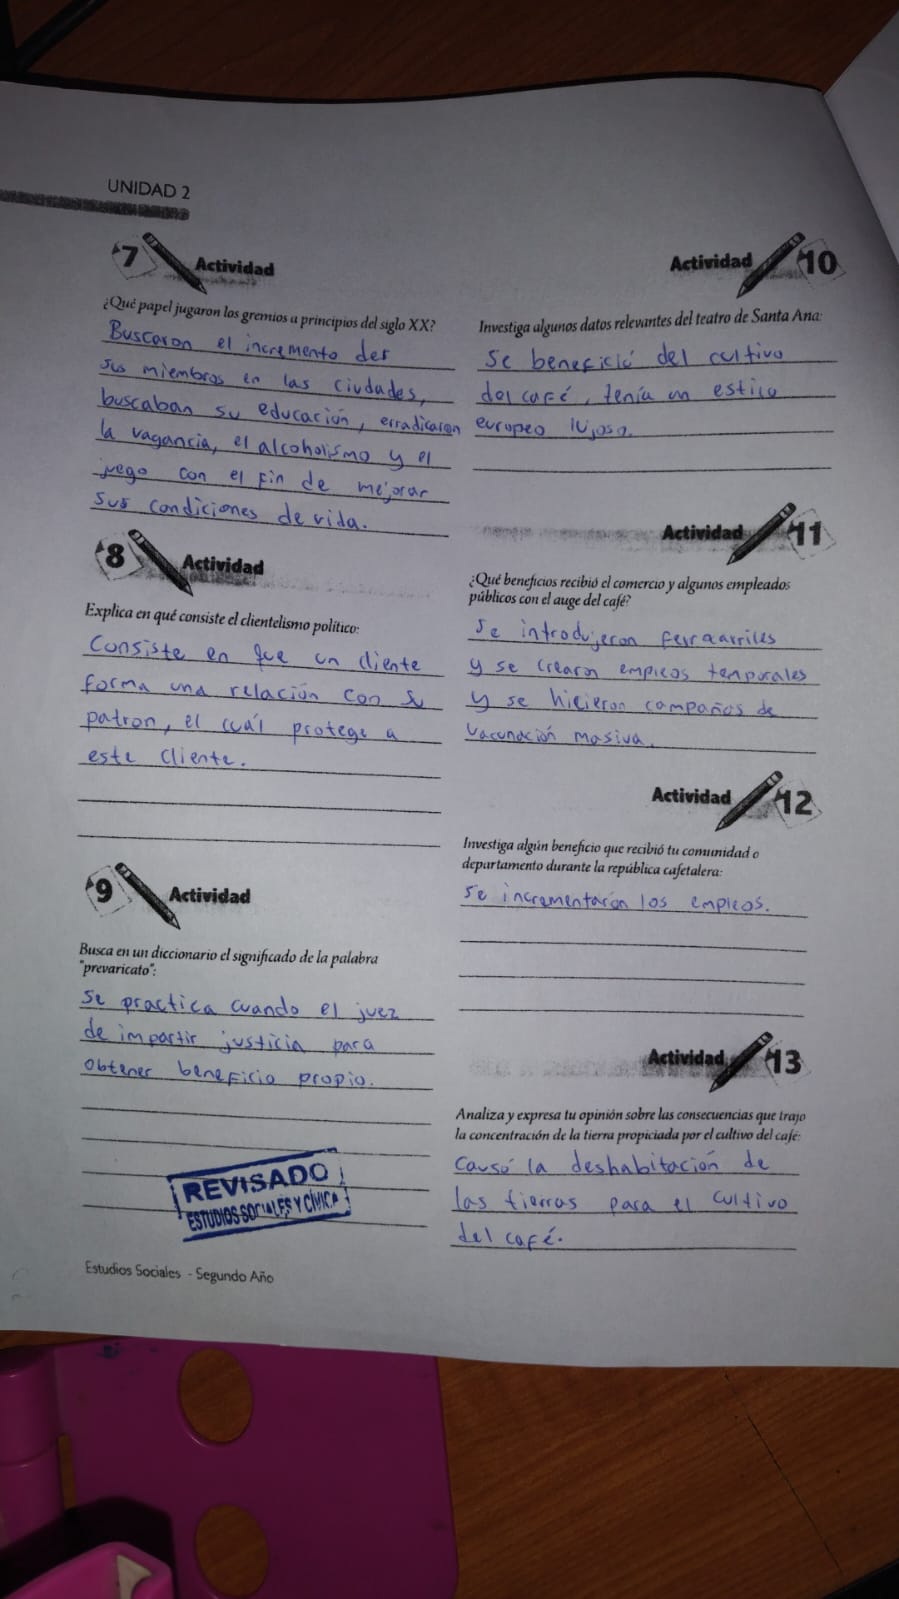 UNIDAD 2
7 Actividad
¿Qué papel jugaron los gremios a principios del siglo XX?
Buscaron el incremento der
sus miembros en las ciudades,
buscaban su educación, erradicaron
la vagancia, el alcoholismo y el
juego con el fin de mejorar
sus condiciones de vida.
8 Actividad
Explica en qué consiste el clientelismo político:
Consiste en que un cliente
forma una relación con su
patron, el cuál protege a
este cliente.
9 Actividad
Busca en un diccionario el significado de la palabra
"prevaricato":
se practica cuando el juez
de impartir justicia para
obtener beneficio propio.
REVISADO
ESTUDIOS SOCIALES Y CÍVICA
Estudios Sociales - Segundo Año
Actividad 10
Investiga algunos datos relevantes del teatro de Santa Ana:
Se benefició del cultivo
del café, tenía un estilo
europeo lujoso.
Actividad 11
¿Qué beneficios recibió el comercio y algunos empleados
públicos con el auge del café?
Se introdujeron ferrocarriles
y se crearon empleos temporales
y se hicieron campañas de
vacunación masiva.
Actividad 12
Investiga algún beneficio que recibió tu comunidad o
departamento durante la república cafetalera:
Se incrementaron los empleos.
Actividad 13
Analiza y expresa tu opinión sobre las consecuencias que trajo
la concentración de la tierra propiciada por el cultivo del café:
Causó la deshabitación de
las tierras para el cultivo
del café.